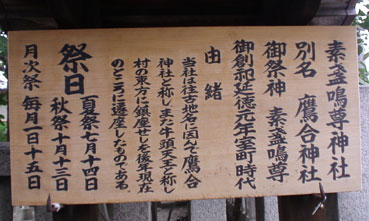 素盞嗚尊神社
別名 鷹合神社
御祭神 素盞嗚尊
御創祀延徳元年室町時代
由緒
当社は往古地名に因んで鷹合
神社と称しまた牛頭天王と称し
村の東方に鎮座せしを後年現在
のところに遷座したものである
祭日
夏祭 七月十四日
秋祭 十月十三日
月次祭 毎月一日十五日